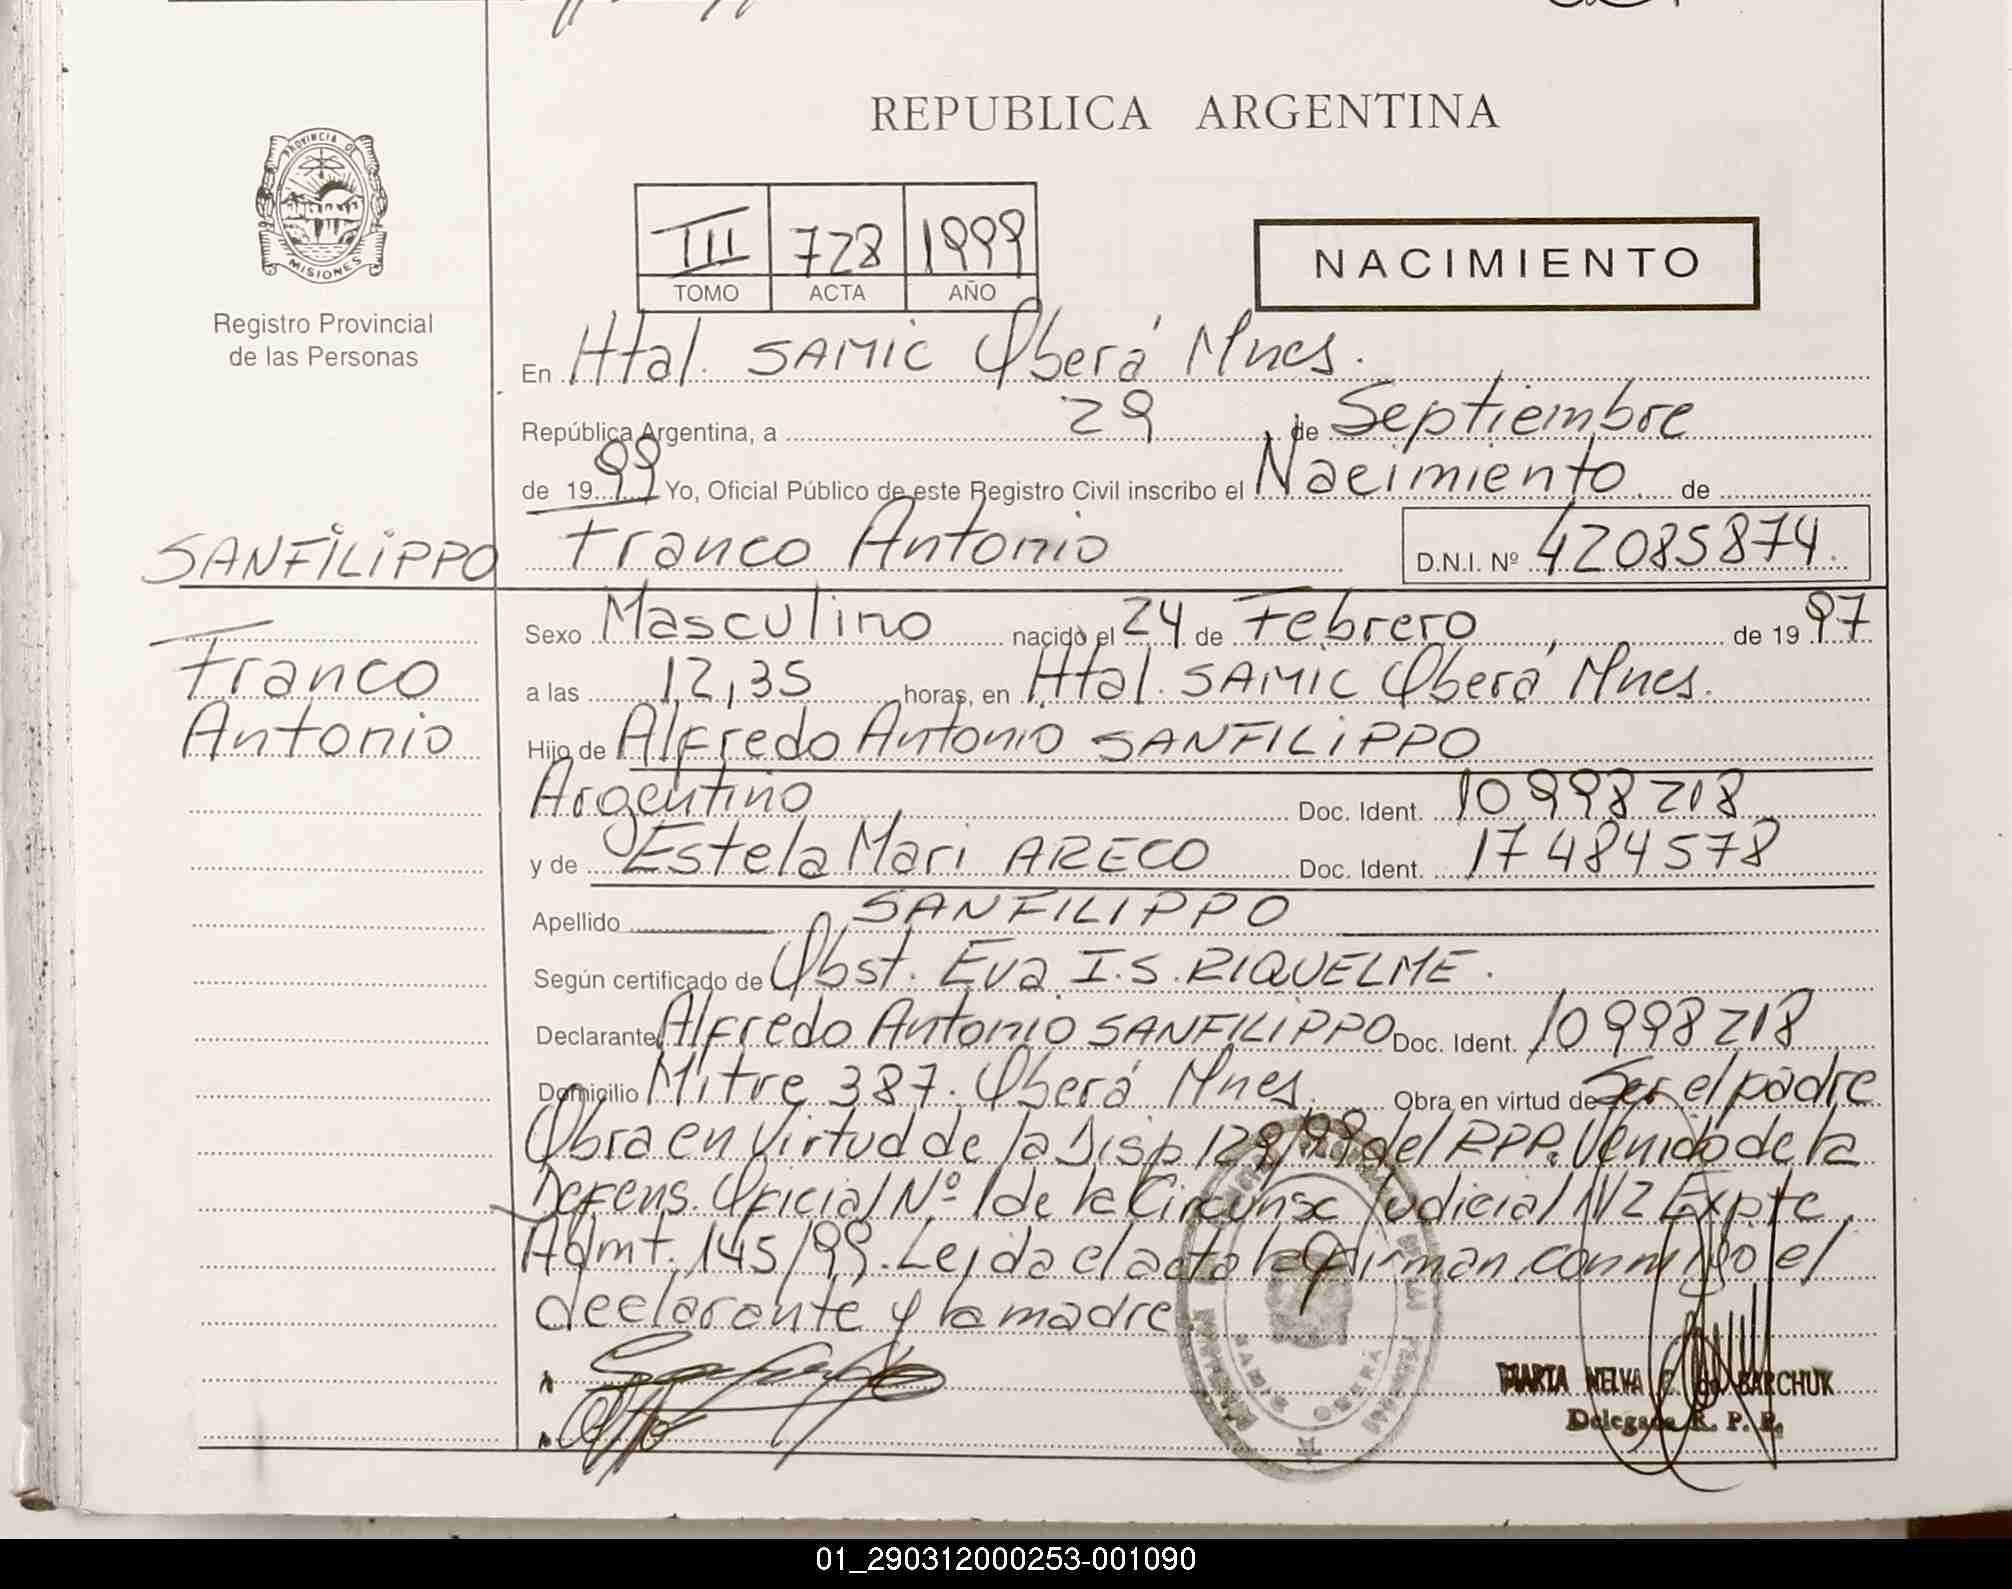 REPUBLICA ARGENTINA
PROVINCIA DE
MISIONES
Registro Provincial
de las Personas
III 728 1999
TOMO ACTA AÑO
NACIMIENTO
En Htal. SAMIC Oberá Mnes.
República Argentina, a 29 de Septiembre
de 1999 Yo, Oficial Público de este Registro Civil inscribo el Nacimiento de
SANFILIPPO Franco Antonio D.N.I. Nº 42085874.
Sexo Masculino nacido el 24 de Febrero de 1997
Franco
Antonio
a las 12,35 horas, en Htal. SAMIC Oberá Mnes.
Hijo de Alfredo Antonio SANFILIPPO
Argentino Doc. Ident. 10998218
y de Estela Mari ARECO Doc. Ident. 17484578
Apellido SANFILIPPO
Según certificado de Obst. Eva I.S. RIQUELME.
Declarante Alfredo Antonio SANFILIPPO Doc. Ident. 10998218
Domicilio Mitre 387. Oberá Mnes. Obra en virtud de Ser el padre
Obra en virtud de la Disp 129/99 del RPP. Venido de la
Defens. Oficial Nº 1 de la Circunsc Judicial Expte
Admt. 145/99. Leida el acta la firman conmigo el
declarante y la madre
MARTA NELVA BARCHUK
Delegada R. P. P.
OBERA
01_290312000253-001090